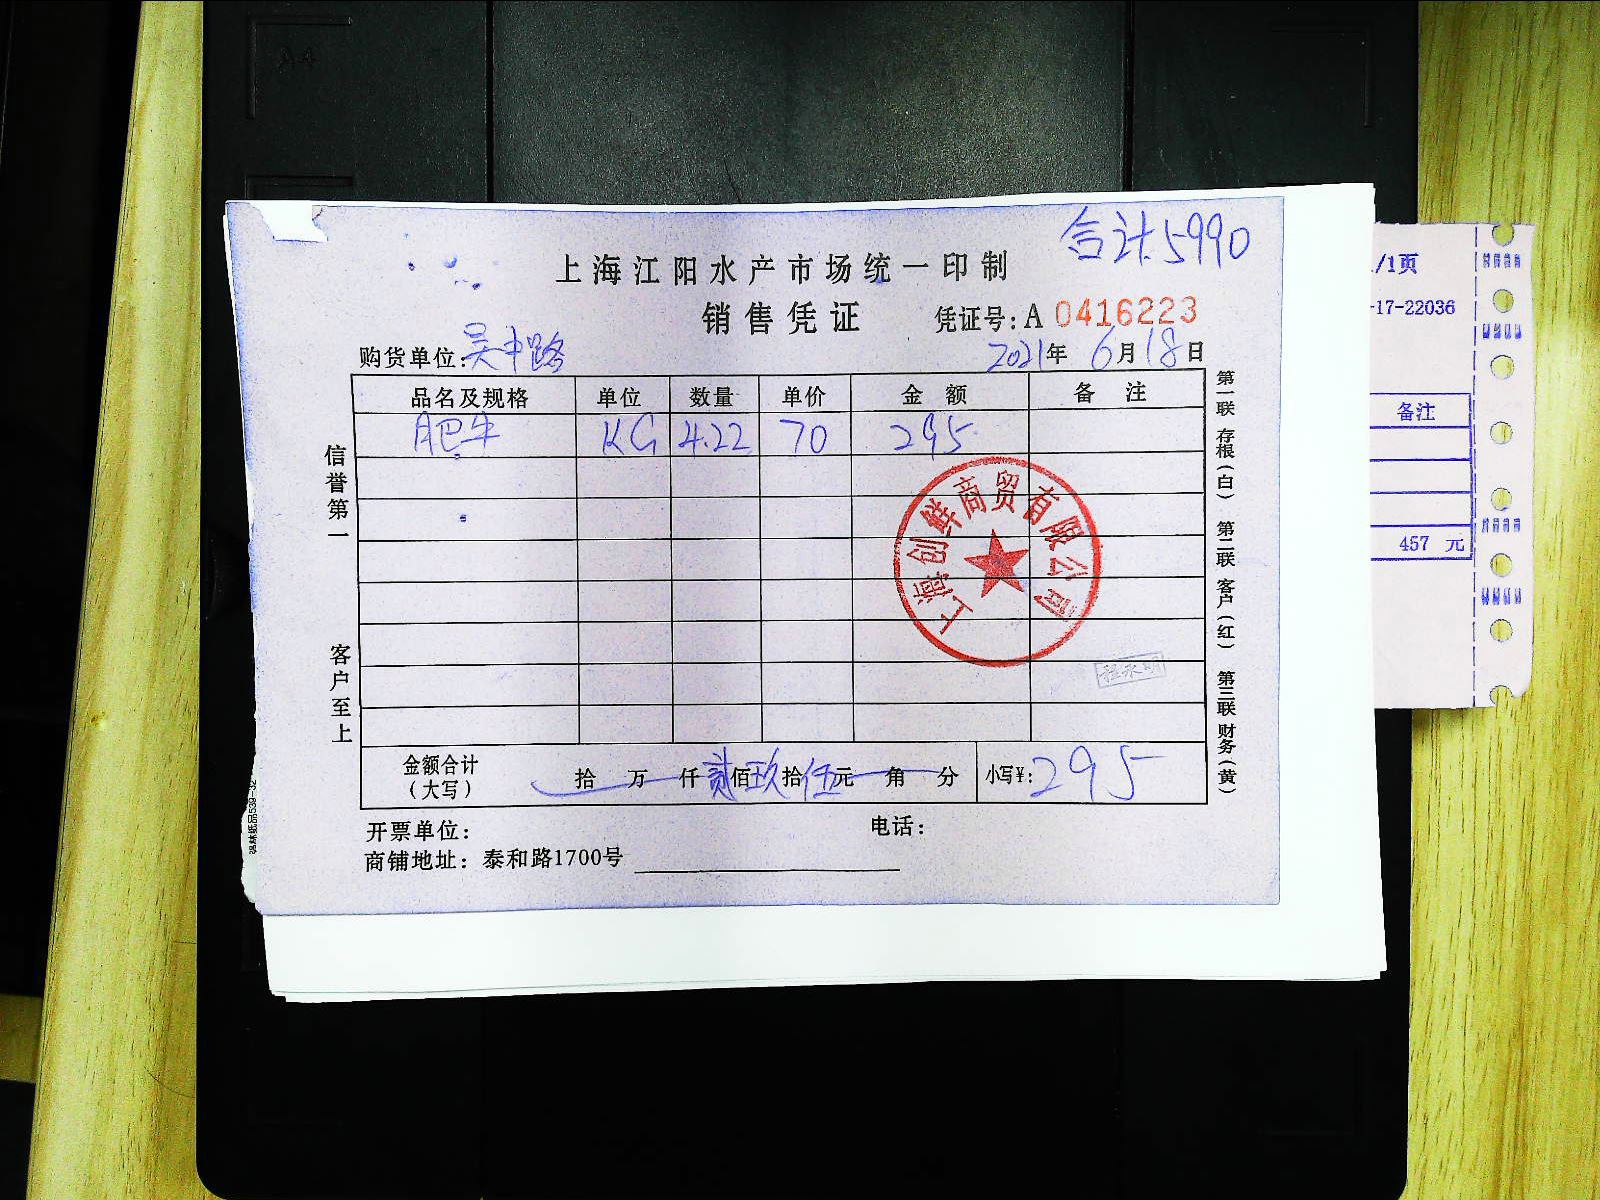 合计5990
上海江阳水产市场统一印制
销售凭证 凭证号:A 0416223
购货单位:吴中路 2021年 6月18日
品名及规格 单位 数量 单价 金额 备注
肥牛 KG 4.22 70 295
信誉第一
客户至上
上海创鲜商贸有限公司
程永明
金额合计(大写) 拾 万 仟 贰佰玖拾伍元 角 分 小写¥:295
开票单位: 电话:
商铺地址:泰和路1700号
第一联 存根(白) 第二联 客户(红) 第三联 财务(黄)
/1页
-17-22036
备注
457 元